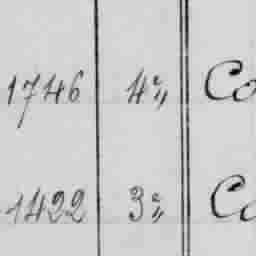 1746 4 % Co
1422 3 % Co